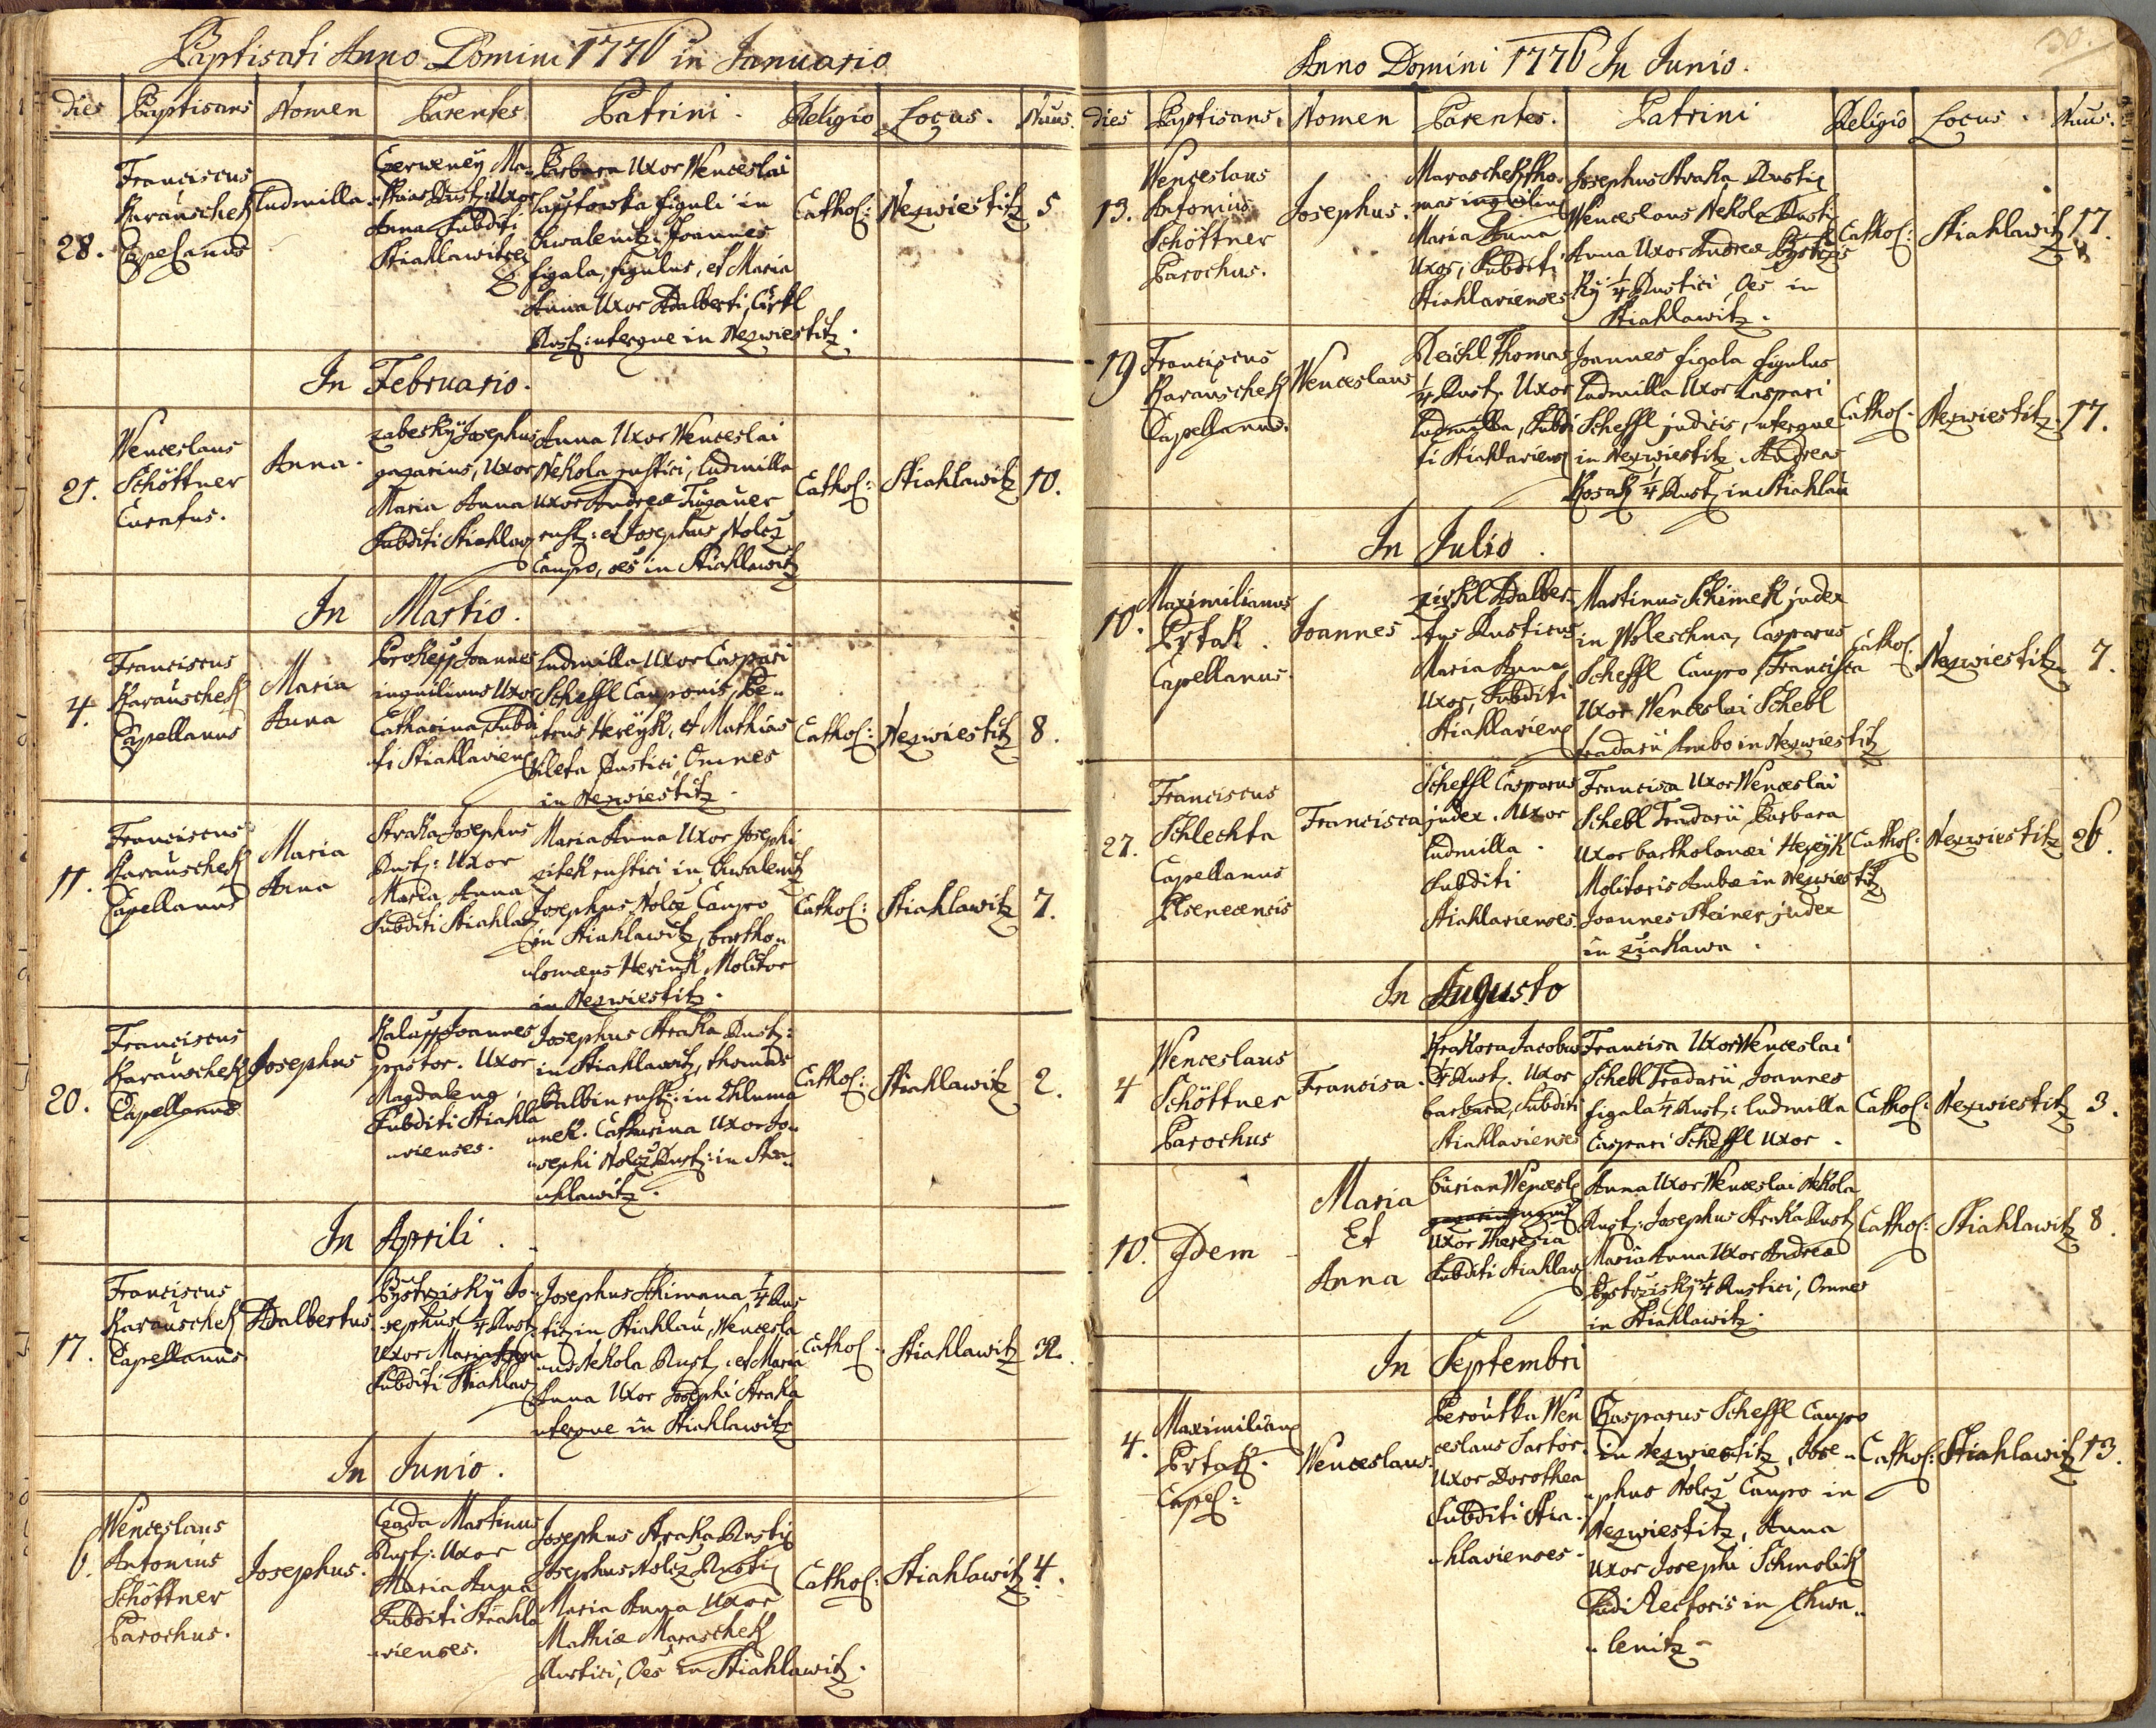 Baptisati Anno Domini 1776 in Januario
dies Baptisans Nomen Parentes Patrini. Religio Locus. Nuus.
28.
Franciscus
Karauschek
Capelanus
Ludmilla
Czerweneÿ Ma-
thias Rust: Uxor
Anna Subditi
Stiahlawitzes
Barbara Uxor Wenceslai
figuli in
Chwalenitz, Joannes
figala, figulus, et Maria
Anna Uxor Adalberti Cirkl
Rust: uterque in Nezwiestitz.
Cathol:
Nezwiestitz
5
In Februario.
21.
Wenceslaus
Schöttner
Curatus.
Anna.
zabeskÿ Josephus
gazarius, Uxor
Maria Anna
Subditi Stiahlav
Anna Uxor Wenceslai
Nekola rustici, Ludmilla
uxor Andreæ Tugauer
rust: et Josephus Nolcz
Caupo, oēs in Stiahlawitz
Cathol:
Stiahlawitz
10.
In Martio.
4.
Franciscus
Karauschek
Capellanus
Maria
Anna
Prokess Joannes
inquilinus Uxor
Catharina Subdi
ti Stiahlaviens
Ludmilla Uxor Caspari
Scheffl Cauponis, Pe-
trus Hereÿk, et Mathias
Vileta Rustici Omnes
in Nezwiestitz.
Cathol:
Nezwiestitz
8.
11.
Franciscus
Karauschek
Capellanus
Maria
Anna
Straka Josephus
Rust: Uxor
Maria Anna
Subditi Stiahlav
Maria Anna Uxor Josephi
zitek rustici in Chwalenitz
Josephus Nolcz Caupo
in Stiahlawitz, bartho-
lomæus Herink Molitor
in Nezwiestitz.
Cathol:
Stiahlawitz
7.
20.
Franciscus
Karauschek
Capellanus
Josephus
Kalass Joannes
pastor. Uxor
Magdalena
Subditi Stiahla
vienses.
Josephus Straka Rust:
in Stiahlawitz, thomas
Balbin rust: in Chluma
nek. Catharina Uxor Jo-
sephi Nolcz Rust: in Stia-
hlawitz.
Cathol:
Stiahlawitz
2.
In Aprili.
17.
Franciscus
Karauschek
Capellanus
Adalbertus.
Bystrziskÿ Jo-
sephus 1/4 Rust
Uxor Maria Anna
Subditi Stiahlav
Josephus Schimana 1/4 Rus
tiz in Stiahlau, Wencesla
us Nekola Rust, et Maria
Anna Uxor Josephi Straka
uterque in Stiahlawitz
Cathol.
Stiahlawitz
32.
In Junio.
6.
Wenceslaus
Antonius
Schöttner
Parochus.
Josephus.
Czada Martinus
Rust: Uxor
Maria Anna
Subditi Stiahla
vienses.
Josephus Straka Rustiz
Josephus Nolcz Rustiz
Maria Anna Uxor
Mathiæ Maraschek
Rustici, Oēs in Stiahlawitz.
Cathol:
Stiahlawitz
4.
130.
Anno Domini 1776 In Junio.
dies Baptisans. Nomen Parentes. Patrini Religio Locus. Nuus.
13.
Wenceslaus
Antonius
Schöttner
Parochus.
Josephus.
Maraschek tho-
mas inquilin
Maria Anna
Uxor, Subditi
Stiahlavienses
Josephus Straka Rustiz
Wenceslaus Nekola Rusti
Anna Uxor Andreæ Bystrzis
kÿ 1/4 Rustici Oēs in
Stiahlawitz.
Cathol:
Stiahlawitz
17.
19
Franciscus
Karauschek
Capellanus.
Wenceslaus
Reichl Thomas
1/4 Rust. Uxor
Ludmilla, Subdi
ti Stiahlaviens
Joannes figala figulus
Ludmilla Uxor Caspari
Scheffl judicis, uterque
in Nezwiestitz. Andreas
Kozak 1/4 Rust in Stiahlau
Cathol.
Nezwiestitz.
17.
In Julio.
10.
Maximilianus
Prtak.
Capellanus.
Joannes
zirkl Adalber-
tus Rusticus
Maria Anna
Uxor, Subditi
Stiahlaviens
Martinus Schimek judex
in Woleschna, Casparus
Scheffl Caupo, Francisca
Uxor Wenceslai Schebl
tradarii Ambo in Nezwiestitz
Cathol.
Nezwiestitz
7.
27.
Franciscus
Schlechta
Capellanus
Plsenecensis
Francisca
Scheffl Casparus
judex. Uxor
Ludmilla.
Subditi
Stiahlavienses.
Francisca Uxor Wenceslai
Schebl Tradarii Barbara
Uxor bartholomæi Hereÿk
Molitoris Ambæ in Nezwiestitz
Joannes Steiner judex
in ziakawa.
Cathol:
Nezwiestitz
26.
In Augusto
4
Wenceslaus
Schöttner
Parochus
Francisca.
Krakora Jacobus
1/4 Rust. Uxor
barbara, Subditi
Stiahlavienses
Francisca Uxor Wenceslai
Schebl Tradarii, Joannes
figala 1/4 Rust: Ludmilla
Caspari Scheffl Uxor.
Cathol:
Nezwiestitz
3.
10.
Idem
Maria
Et
Anna
burian Wencesl
Uxor Theresia
Subditi Stiahlav
Anna Uxor Wenceslai Nekola
Rust: Josephus Straka Rust
Maria Anna Uxor Andreæ
Bystrziskÿ 1/4 Rustici, Omnes
in Stiahlawitz.
Cathol:
Stiahlawitz
8.
In Septembri
4.
Maximilian
Prtak.
Capel:
Wenceslaus.
Peroutka Wen
ceslaus Sartor.
Uxor Dorothea
Subditi Stia-
hlavienses.
Kasparus Scheffl Caupo
in Nezwiestitz, Jose-
phus Nolcz Caupo in
Nezwiestitz, Anna
Uxor Josephi Schmolik
Ludi Rectoris in Chwa-
lenitz.
Cathol:
Stiahlawitz
13.